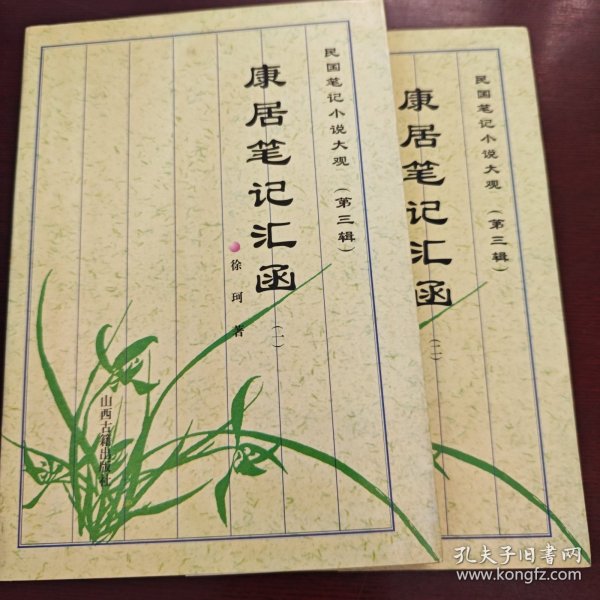 民国笔记小说大观(第三辑)
康居笔记汇函(一)
徐珂 著
山西古籍出版社
民国笔记小说大观(第三辑)
康居笔记汇函(二)
孔夫子旧书网
www.kongfz.com